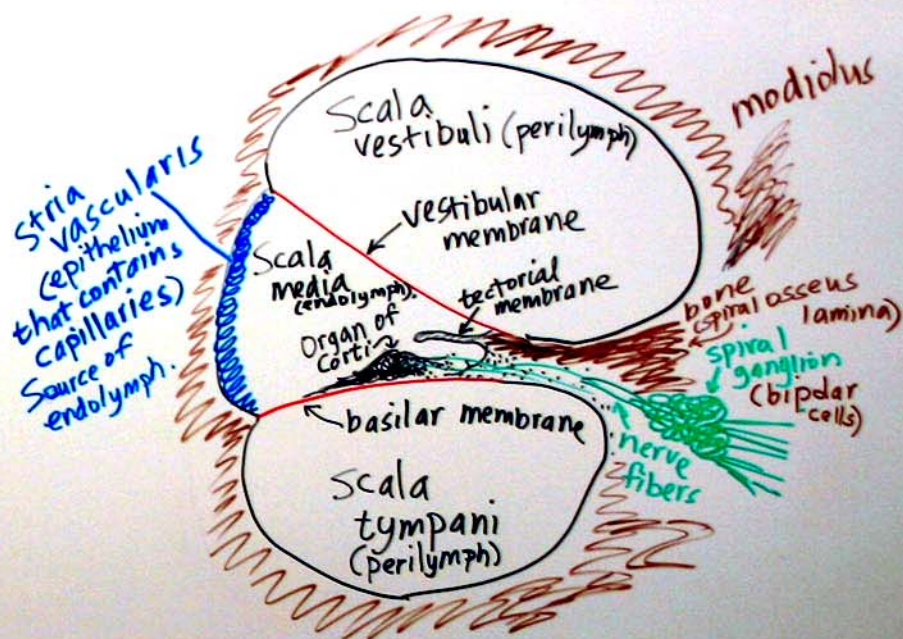 modiolus
Scala
vestibuli (perilymph)
Stria
vascularis
(epithelium
that contains
capillaries)
Source of
endolymph.
vestibular
membrane
Scala
media
(endolymph).
tectorial
membrane
Organ of
Corti
bone
(spiral osseus
lamina)
spiral
ganglion
(bipolar
cells)
basilar membrane
nerve
fibers
Scala
tympani
(perilymph)